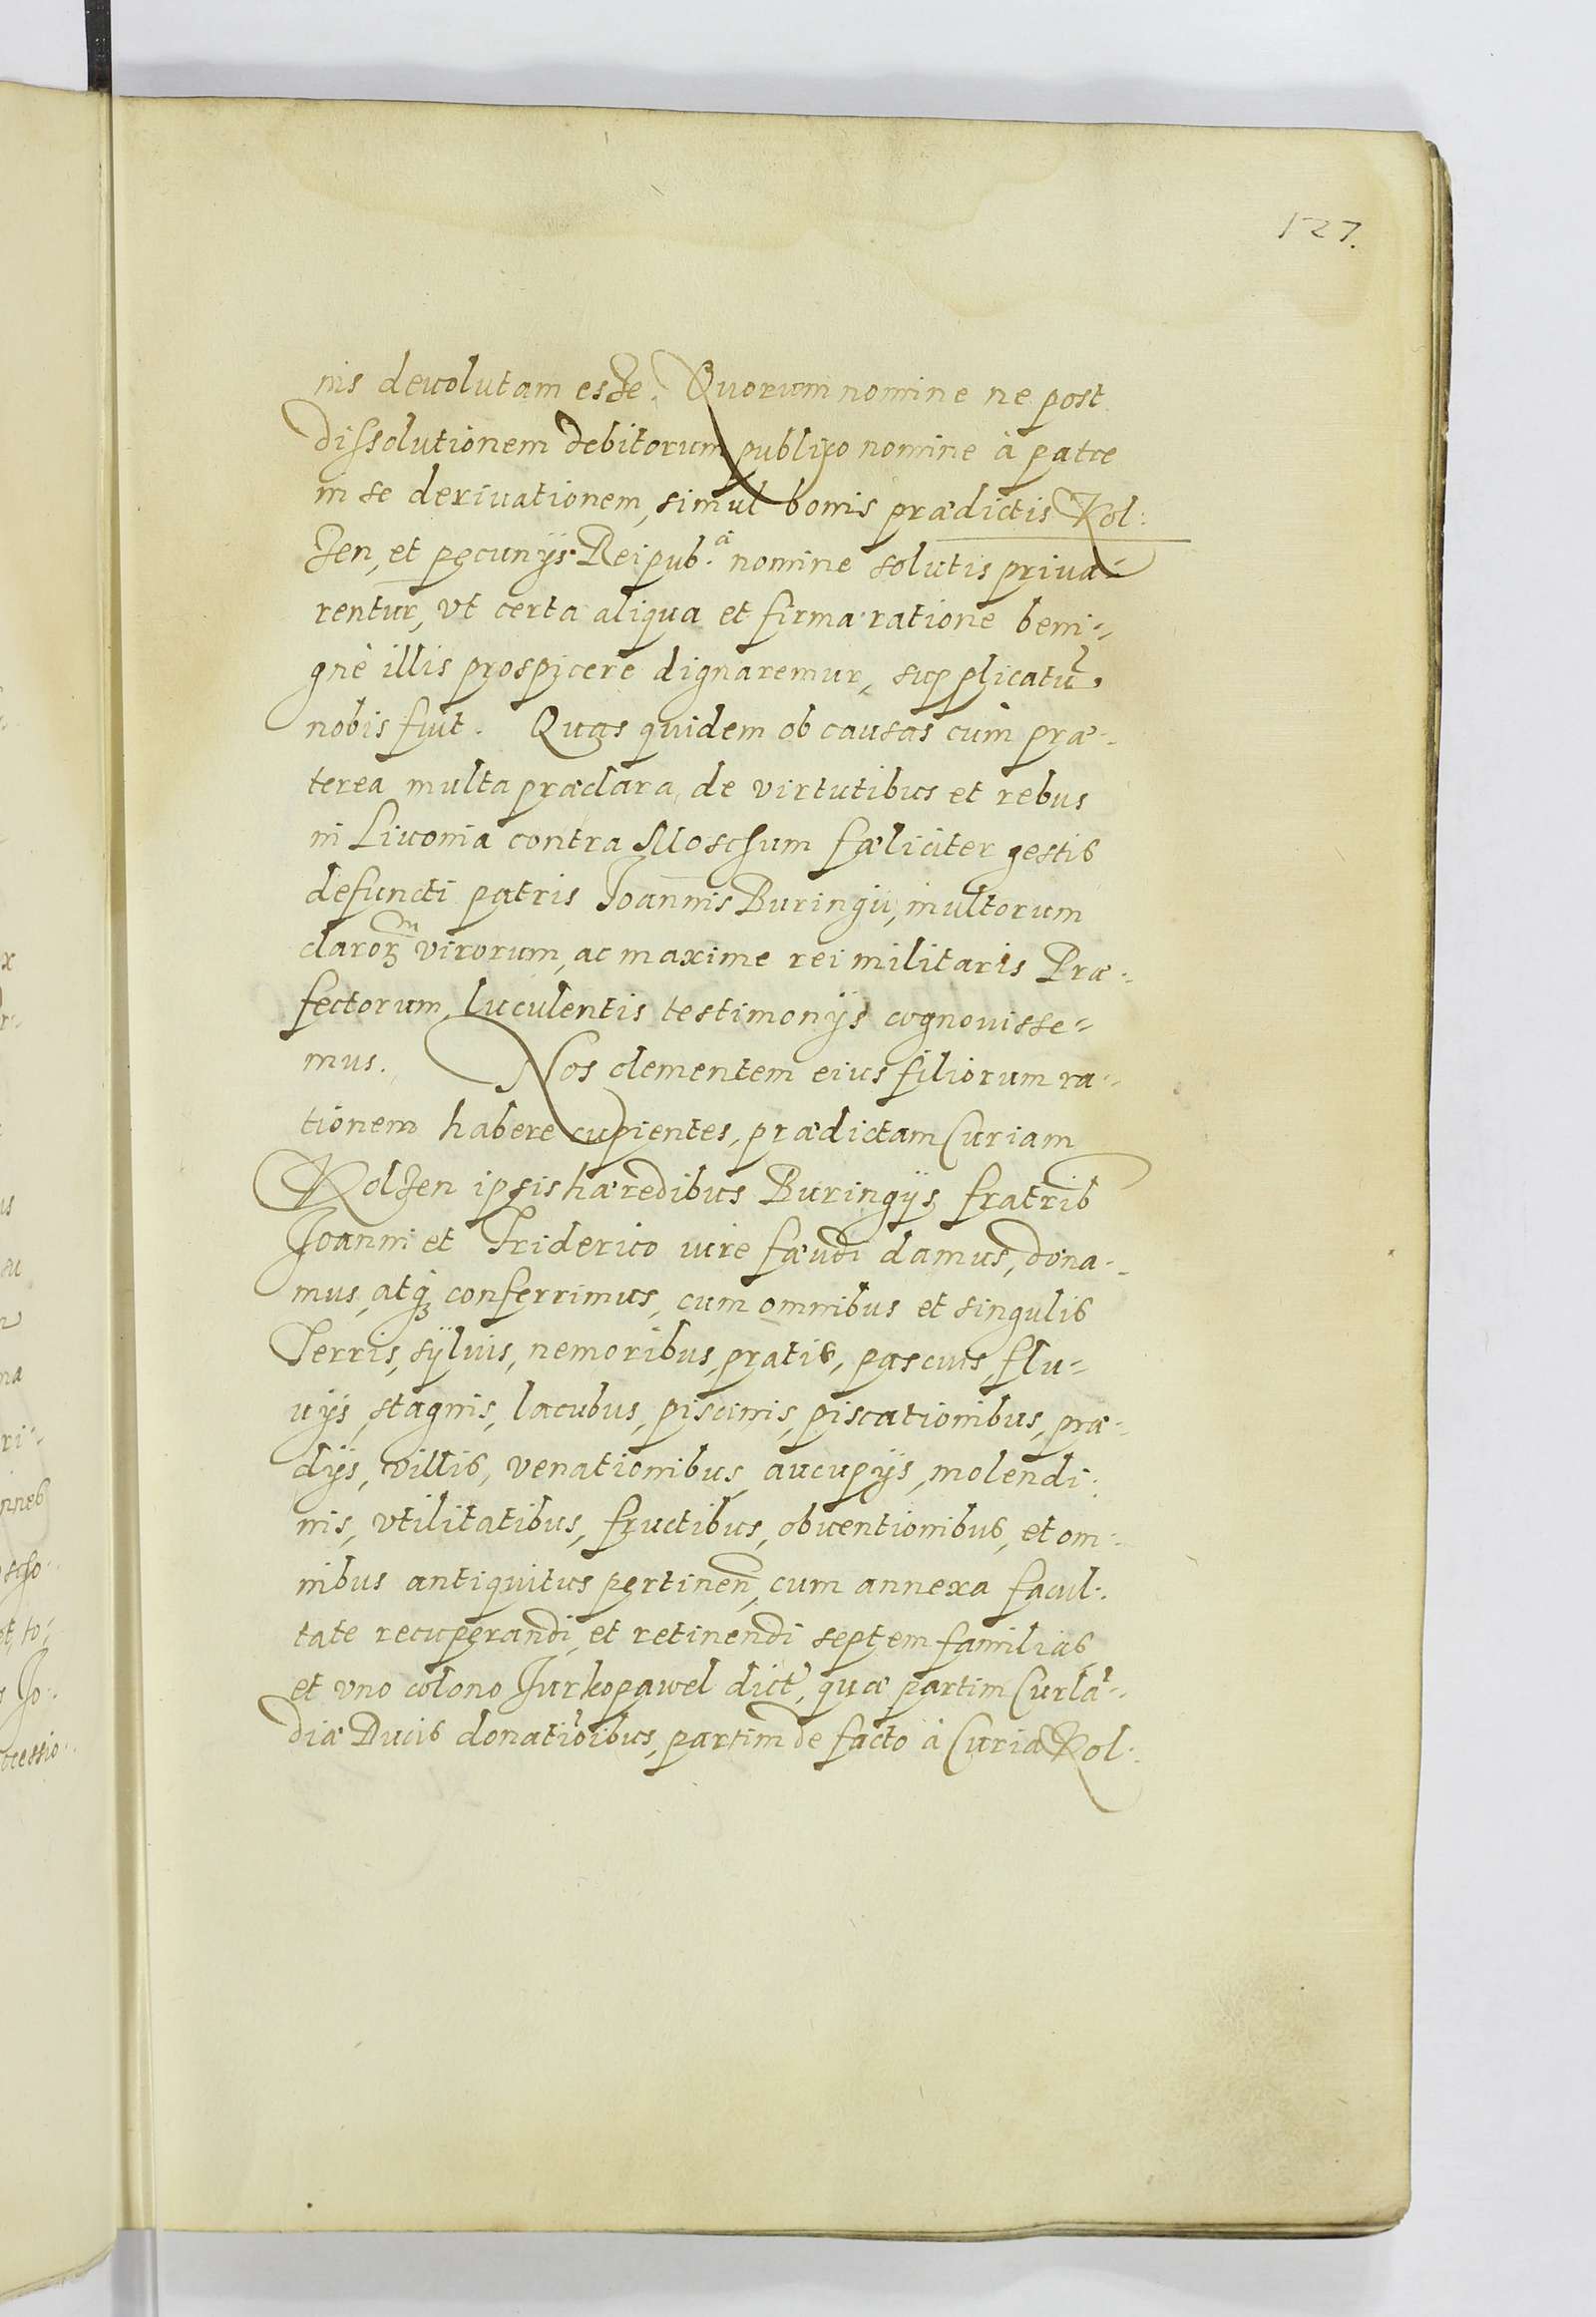 127.
nis deuolutam esse. Quorum nomine ne post
dissolutionem debitorum publico nomine à patre
in se deriuationem, simul bonis prædictis Kol:
zen, et pecunijs Reipub.ᵃ nomine solutis priua=
rentur, vt certa aliqua et firma ratione beni=
gnè illis prospicere dignaremur, supplicatũ
nobis fuit. Quas quidem ob causas cum præ=
terea multa præclara de virtutibus et rebus
in Liuonia contra Moschum fæliciter gestis
defuncti patris Joannis Buringii, multorum
claroꝝ virorum, ac maxime rei militaris Præ=
fectorum, luculentis testimonijs cognouisse=
mus. Nos clementem eius filiorum ra=
tionem habere cupientes, prædictam Curiam
Kolzen ipsis hæredibus Buringijs fratrib
Joanni et Friderico iure fæudi damus, dona=
mus, atqꝫ conferrimus, cum omnibus et singulis
Terris, syluis, nemoribus, pratis, pascuis, flu=
uijs, stagnis, lacubus, piscinis, piscationibus, præ=
dijs, villis, venationibus, aucupijs, molendi:
nis, vtilitatibus, fructibus, obuentionibus, et om=
nibus antiquitus pertinen̄, cum annexa facul:
tate recuperandi, et retinendi septem familias,
et vno colono Jurkopawel dict, quæ partim Curlā=
diæ Ducis donatioībus, partim de facto à Curia Kol: